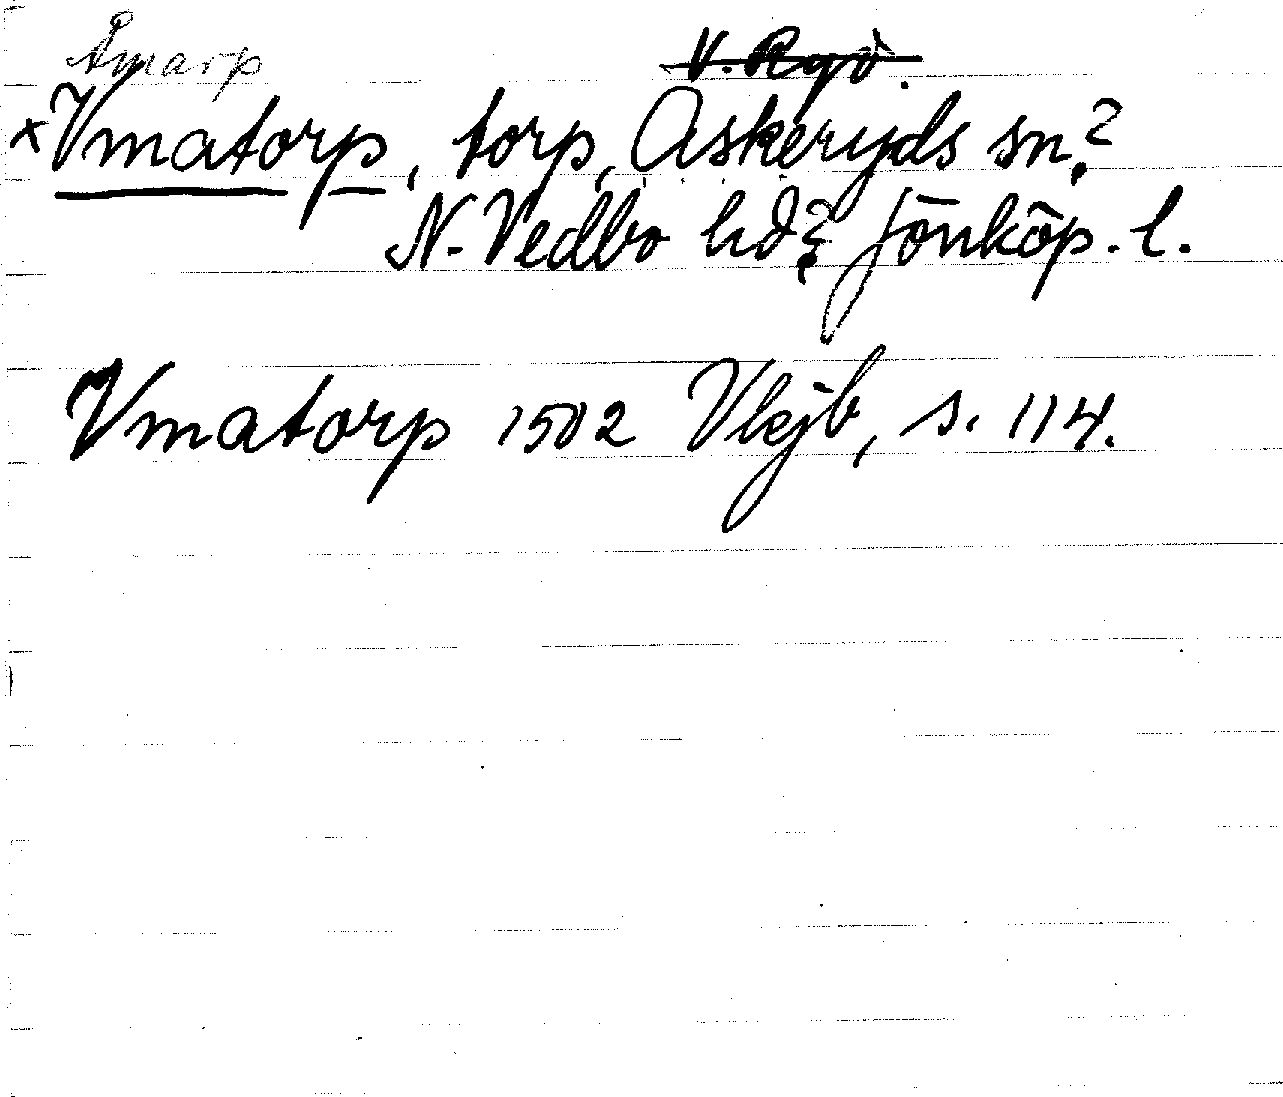 Åmarp
V. Ryd.
x Vmatorp, torp, Askeryds sn?
N. Vedbo hd? Jönköp. l.
Vmatorp 1502 Vkjb, s. 114.